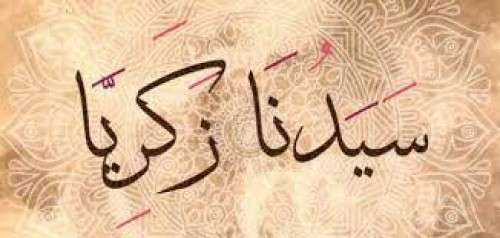 سَيَدُنَا زَكَرِيَّا